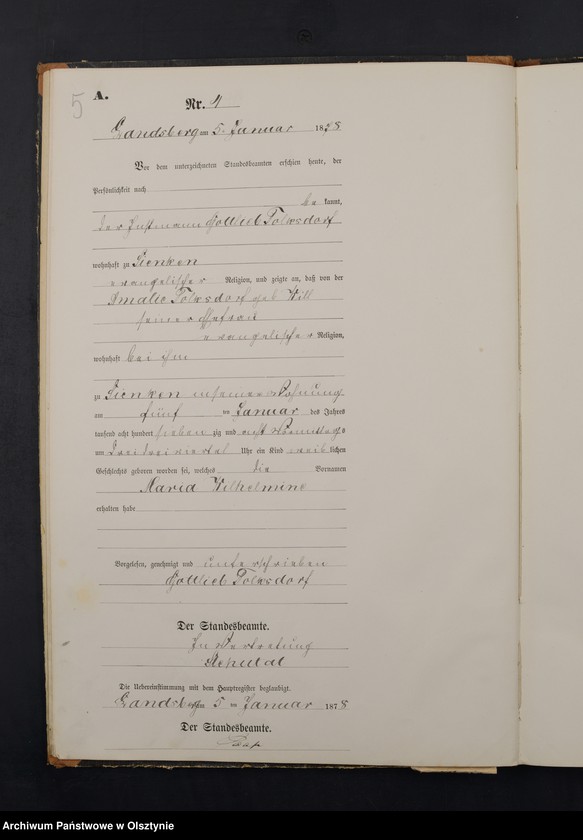 5
A.
Nr. 4
Landsberg am 5. Januar 1878
Vor dem unterzeichneten Standesbeamten erschien heute, der
Persönlichkeit nach
be kannt,
der Instmann Gottlieb Tolksdorf
wohnhaft zu
evangelischer Religion, und zeigte an, daß von der
Amalie Tolksdorf geb Will
seiner Ehefrau
evangelischer Religion,
wohnhaft bei ihm
zu in seiner Wohnung
am fünf ten Januar des Jahres
tausend acht hundert sieben zig und acht Vormittags
um drei dreiviertel Uhr ein Kind weib lichen
Geschlechts geboren worden sei, welches die Vornamen
Maria Wilhelmine
erhalten habe
Vorgelesen, genehmigt und unterschrieben
Gottlieb Tolksdorf
Der Standesbeamte.
In Vertretung
Die Uebereinstimmung mit dem Hauptregister beglaubigt.
Landsberg am 5 ten Januar 1878
Der Standesbeamte.
Archiwum Państwowe w Olsztynie